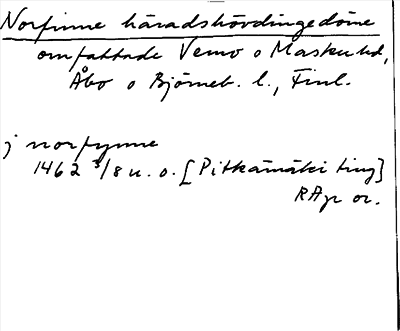 Norfinne häradshövdingedöme
omfattade Vemo o Masku hd,
Åbo o Björneb. l., Finl.
j norfynne
1462 3/8 u. o. [Pitkämäki ting]
RAp or.